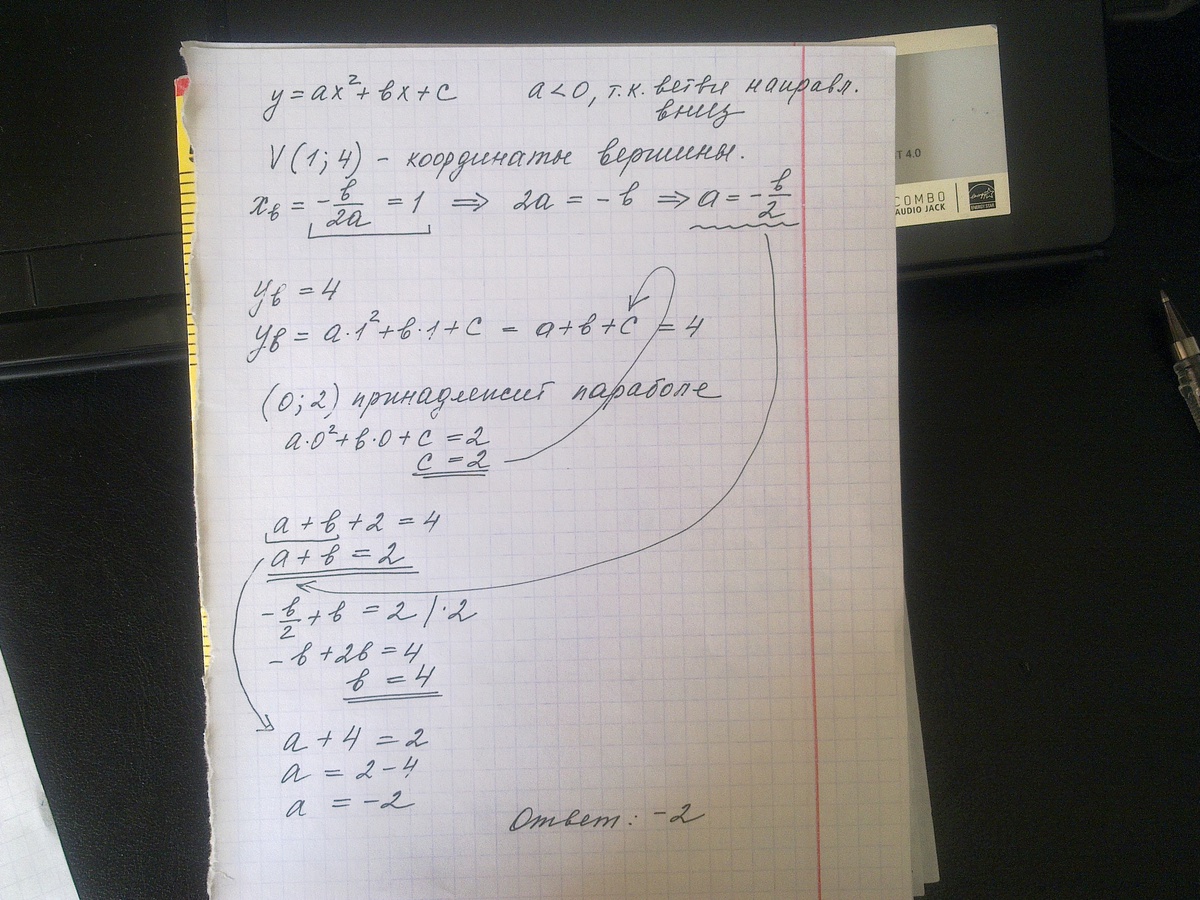 y = ax² + bx + c   a < 0, т.к. ветви направл.
вниз
V (1; 4) - координаты вершины.
xв = -b/2a = 1 ⇒ 2a = -b ⇒ a = -b/2
yв = 4
yв = a·1² + b·1 + c = a + b + c = 4
(0; 2) принадлежит параболе
a·0² + b·0 + c = 2
c = 2
a + b + 2 = 4
a + b = 2
-b/2 + b = 2 /·2
-b + 2b = 4
b = 4
a + 4 = 2
a = 2 - 4
a = -2
Ответ: -2
T 4.0
COMBO
AUDIO JACK
ENERGY STAR